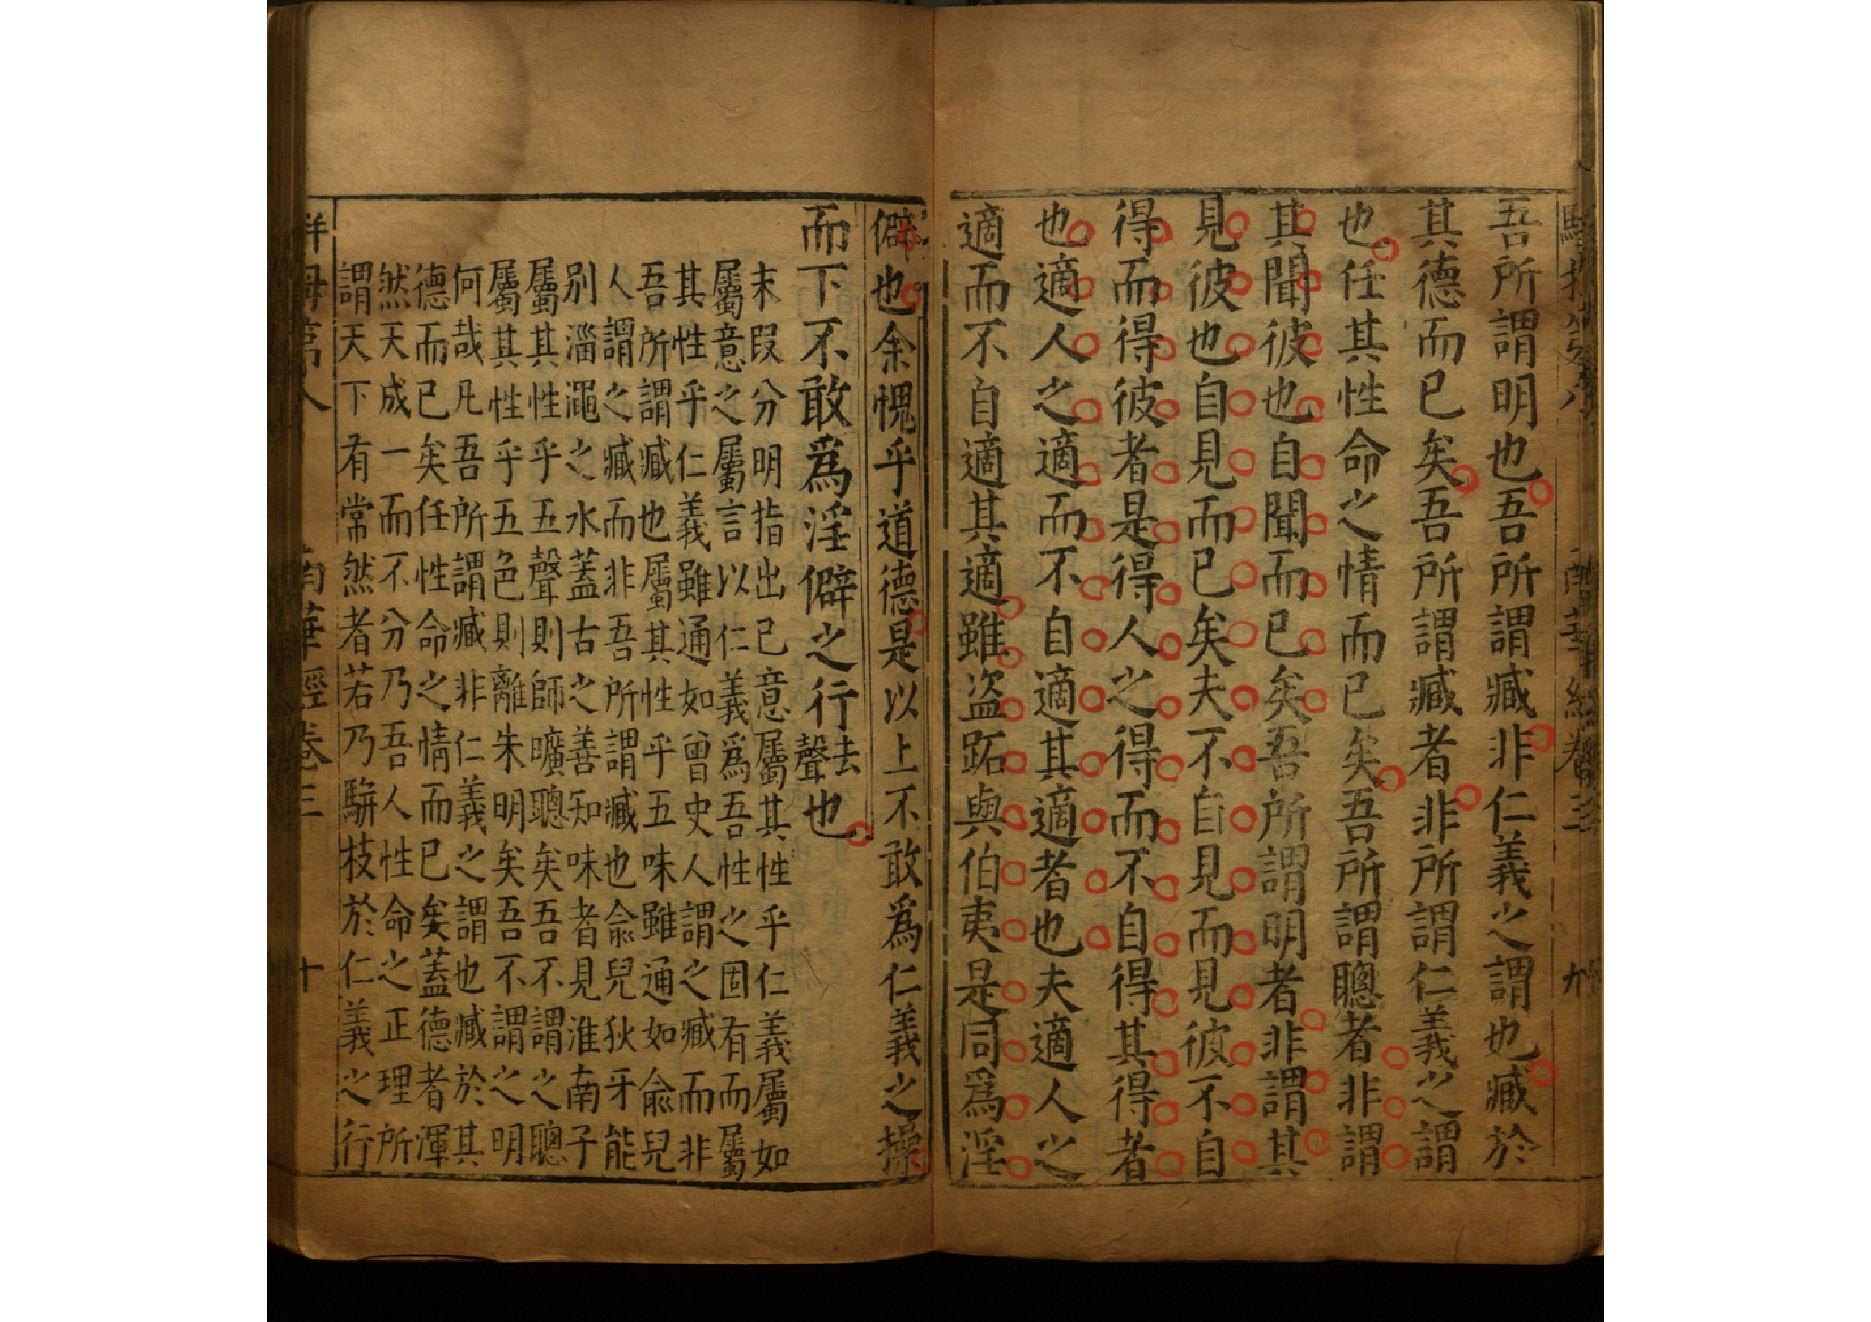 吾所謂明也吾所謂臧非仁義之謂也臧於
其德而已矣吾所謂臧者非所謂仁義之謂
也任其性命之情而已矣吾所謂聰者非謂
其聞彼也自聞而已矣吾所謂明者非謂其
見彼也自見而已矣夫不自見而見彼不自
得而得彼者是得人之得而不自得其得者
也適人之適而不自適其適者也夫適人之
適而不自適其適雖盜跖與伯夷是同爲淫
僻也余愧乎道德是以上不敢爲仁義之操
而下不敢爲淫僻之行去聲也
末段分明指出己意屬其性乎仁義屬如
屬意之屬言以仁義爲吾性之固有而屬
其性乎仁義雖通如曾史人謂之臧而非
吾所謂臧也屬其性乎五味雖通如俞兒
人謂之臧而非吾所謂臧也俞兒狄牙能
別淄澠之水蓋古之善知味者見淮南子
屬其性乎五聲則師曠聰矣吾不謂之聰
屬其性乎五色則離朱明矣吾不謂之明
何哉凡吾所謂臧非仁義之謂也臧於其
德而已矣任性命之情而已矣蓋德者渾
然天成一而不分乃吾人性命之正理所
謂天下有常然者若乃駢枝於仁義之行
南華經卷三
十